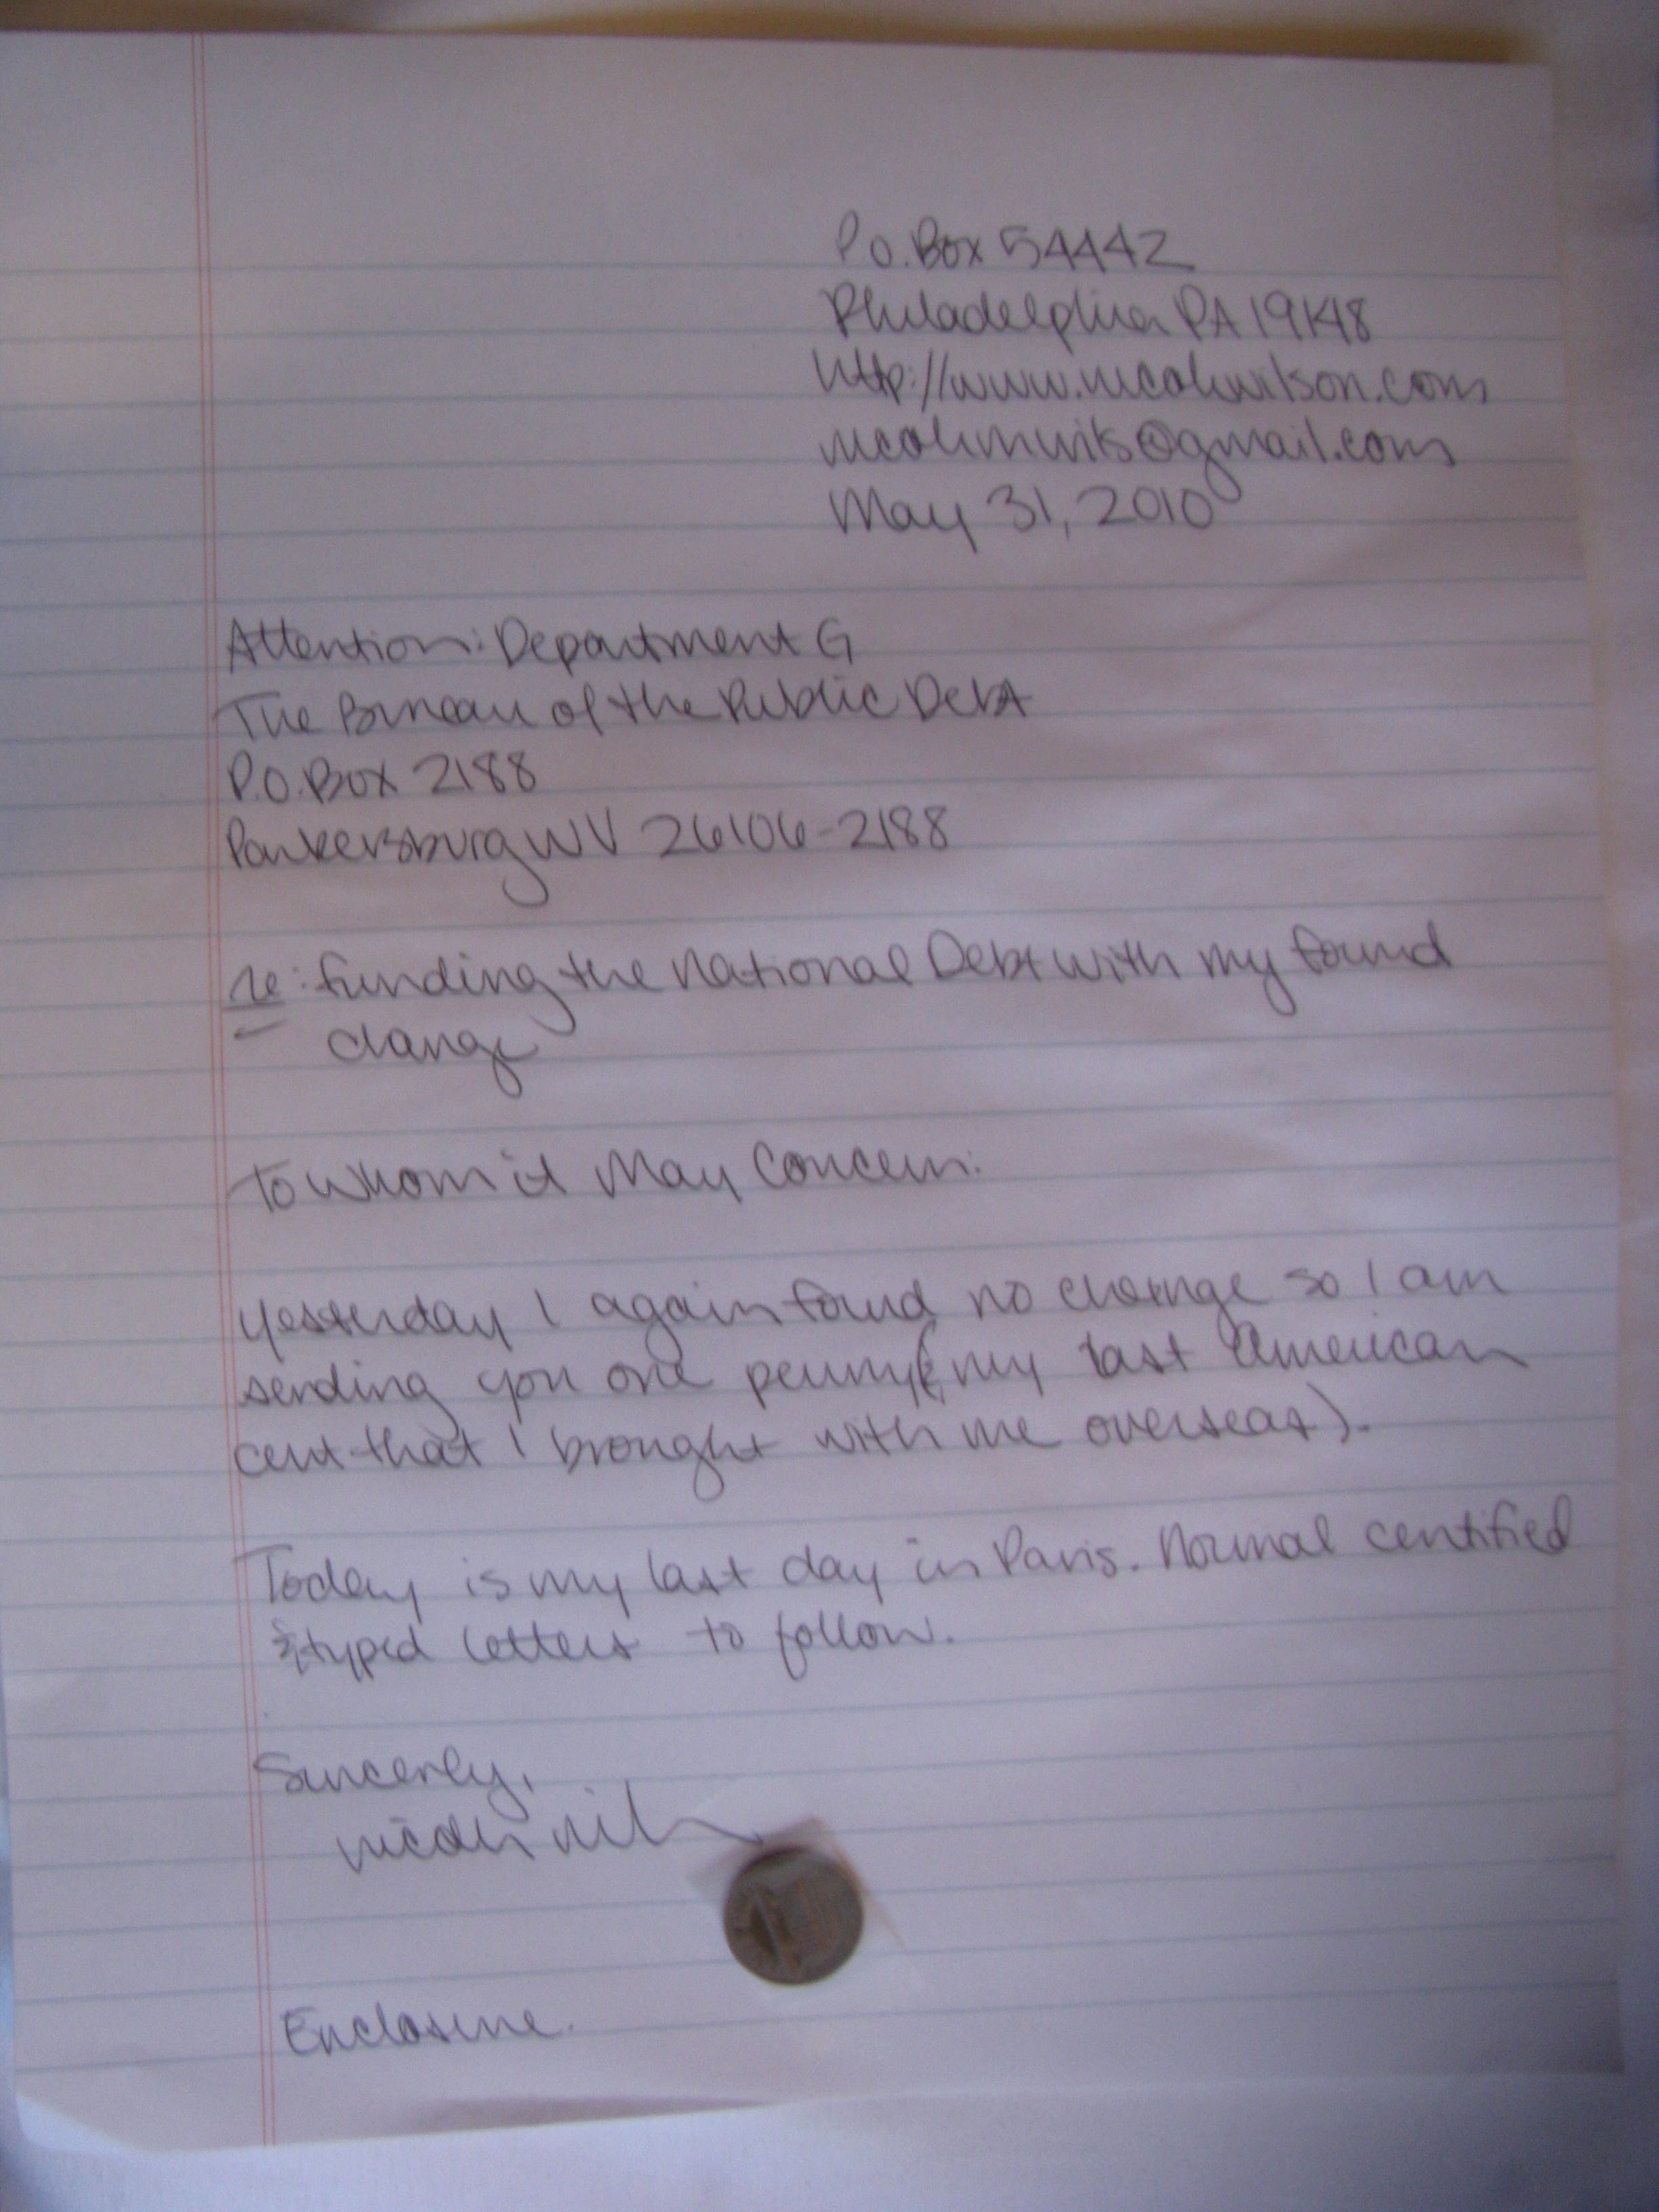 P.O. Box 54442
Philadelphia PA 19148
http://www.nicolewilson.com
May 31, 2010
Attention: Department G
The Bureau of the Public Debt
P.O. Box 2188
Parkersburg WV 26106-2188
re: funding the National Debt with my found
change
To Whom it May Concern:
Yesterday I again found no change so I am
sending you one penny (my last American
cent that I brought with me overseas).
Today is my last day in Paris. Normal certified
& typed letters to follow.
Sincerely,
Enclosure.